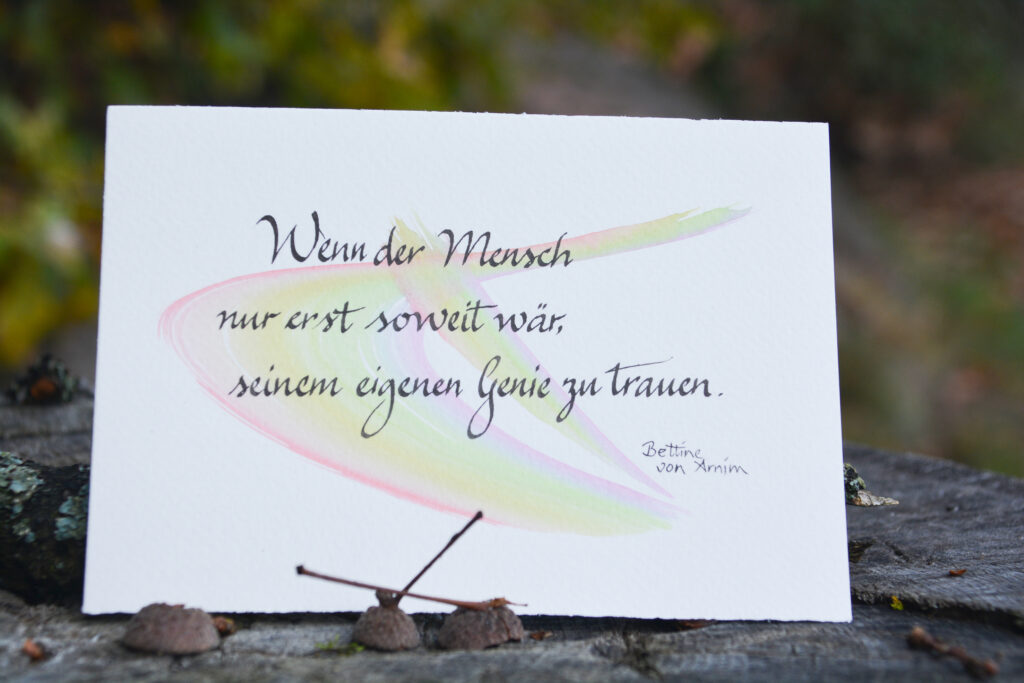 Wenn der Mensch
nur erst soweit wär,
seinem eigenen Genie zu trauen.
Bettine
von Arnim